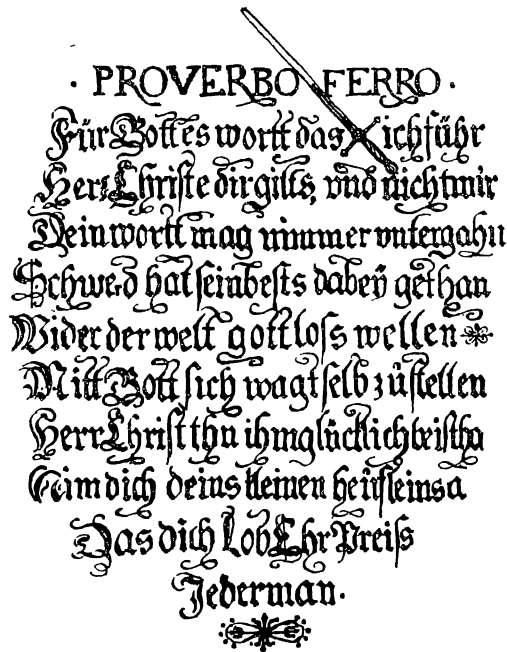 · PROVERBO FERRO ·
Für Gottes wortt das ich führ
Herr Christe dir gills, vnd nicht mir
Dein wortt mag nimmer vntergahn
Schwed hat sein bests dabeÿ gethan
Wider der welt gottloss wellen
Mitt Gott sich wagt selb zů stellen
Herr Christ thu ihm glücklich beistha
Nim dich deins kleinen heüfleins a
Das dich Lob Ehr Preiss
Jederman.